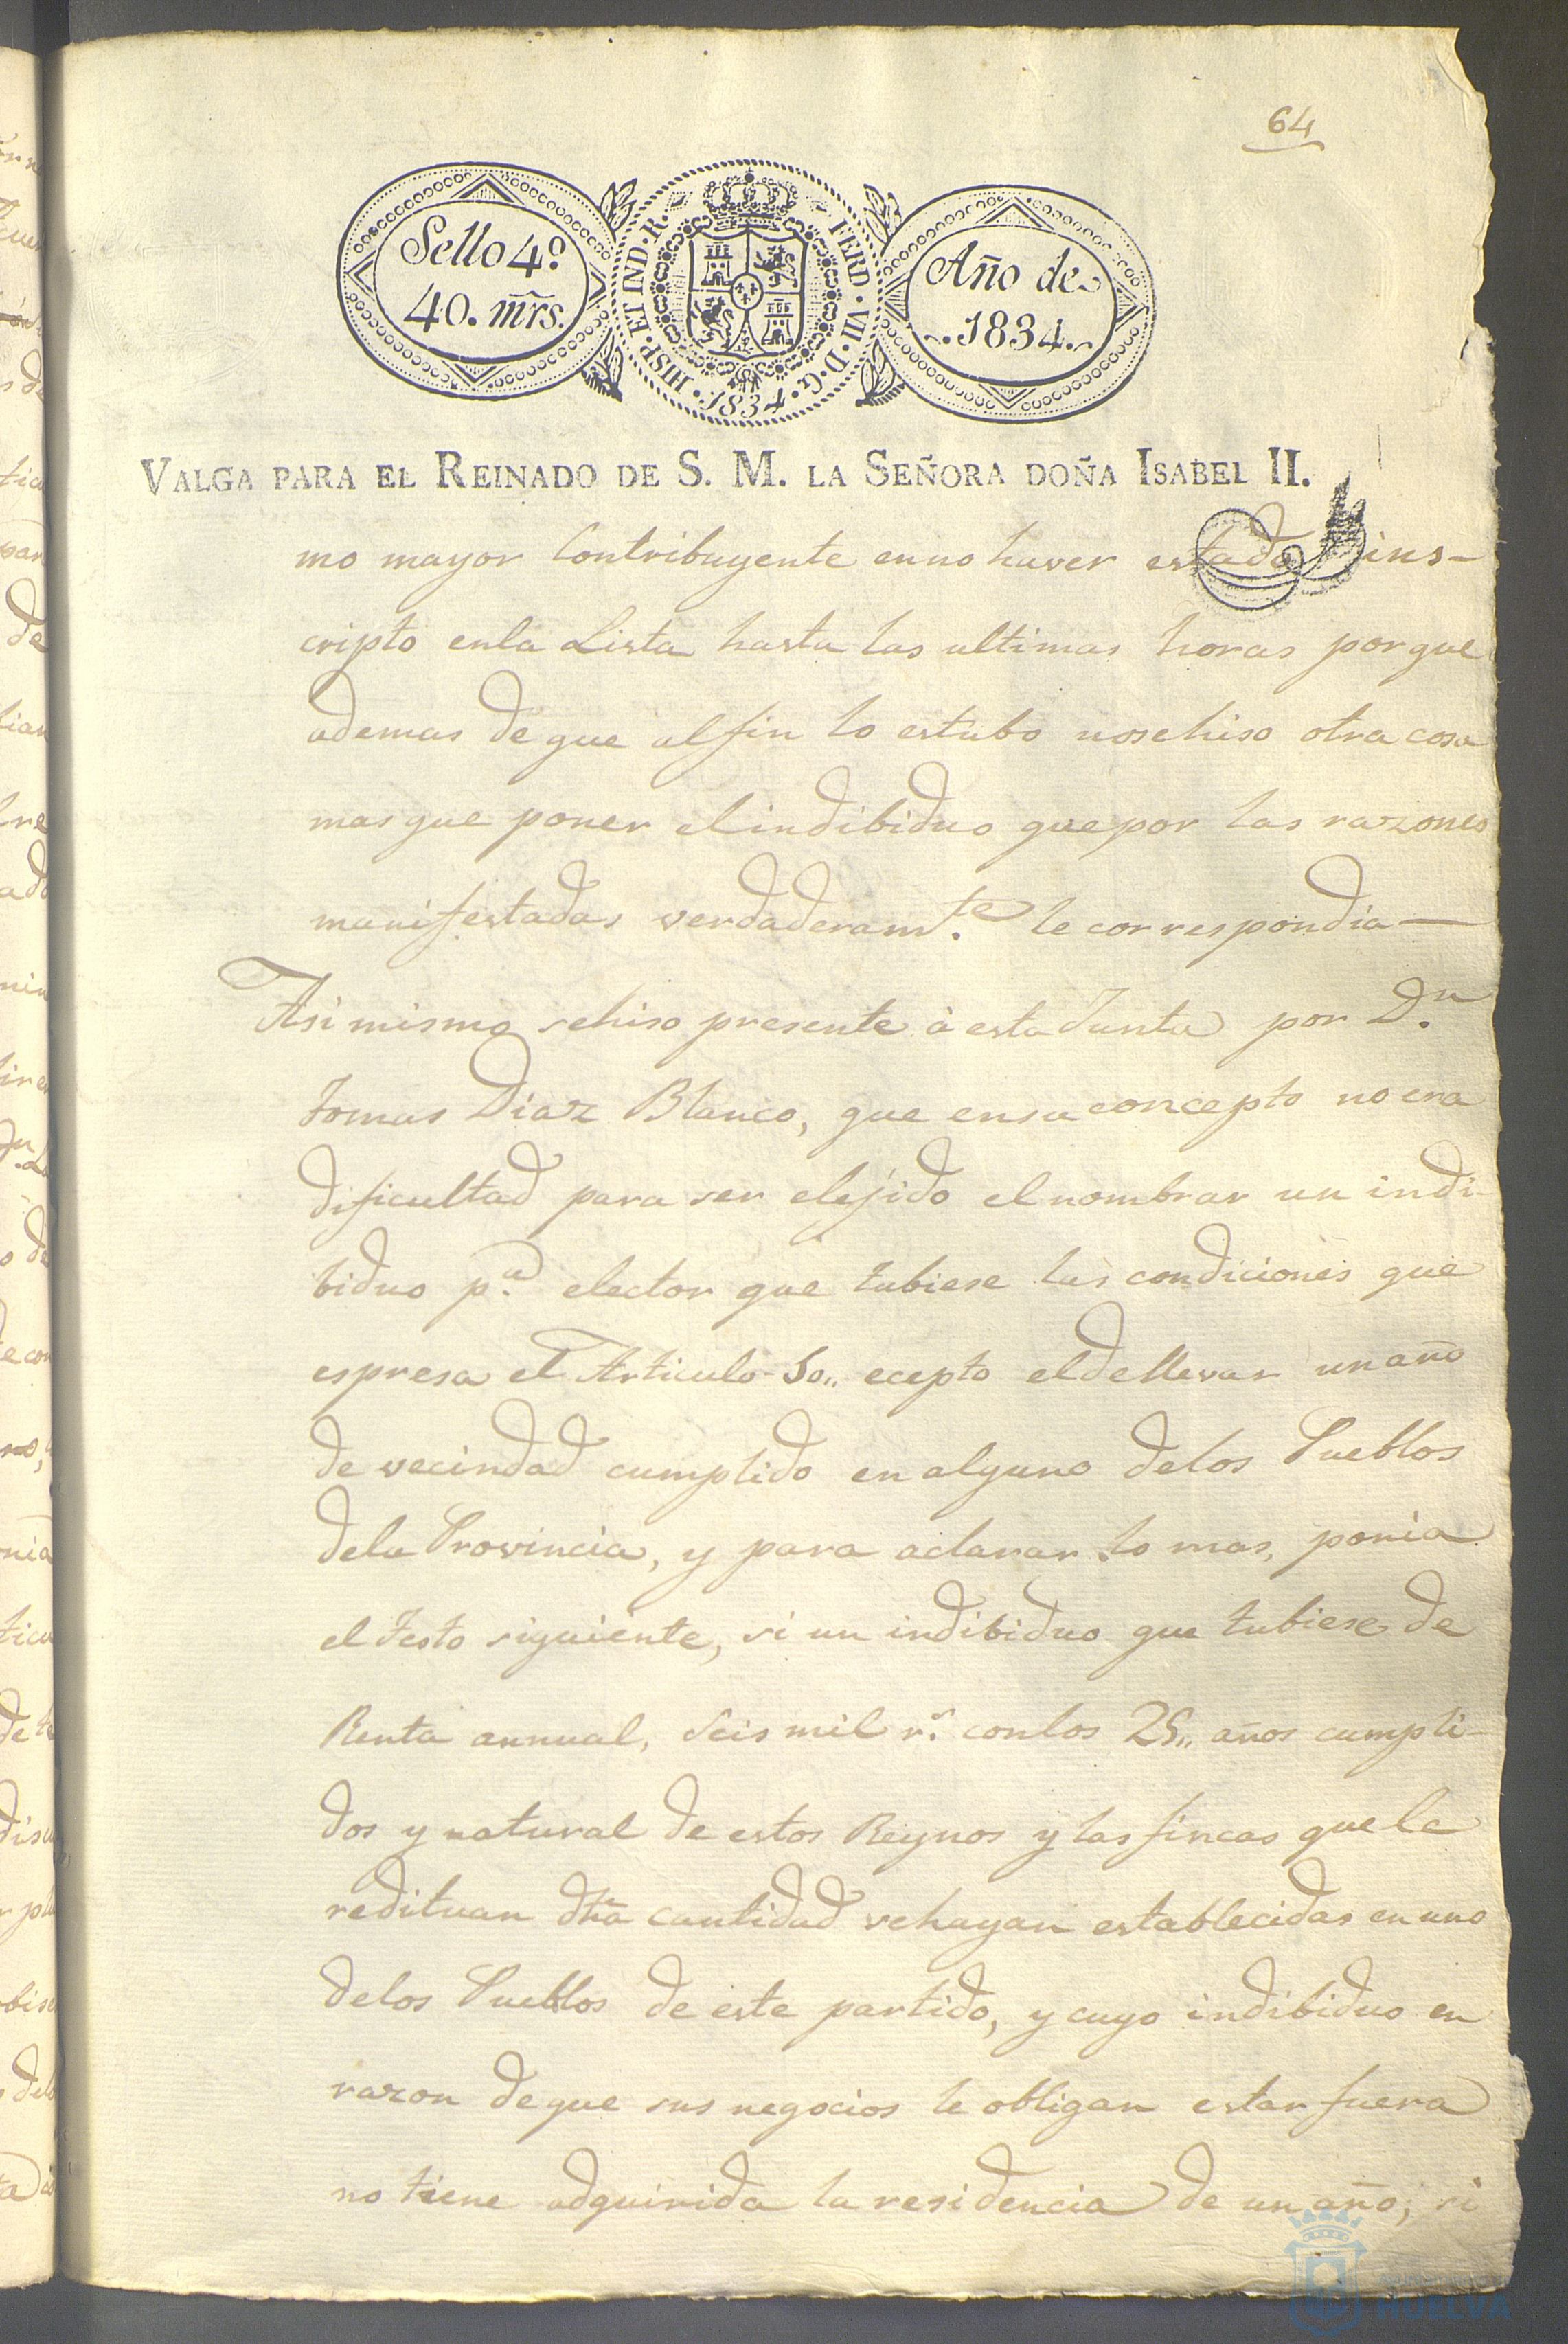 64
Sello 4º.
40. mr̃s.
HISP. ET IND. R.
FERD. VII. D. G.
1834
Año de
.1834.
VALGA PARA EL REINADO DE S. M. LA SEÑORA DOÑA ISABEL II.
mo mayor Contribuyente enno haver estado ins-
cripto enla Lista hasta las ultimas horas porque
ademas de que alfin lo estubo nosehiso otra cosa
masque poner elindibiduo quepor las razones
manifestadas verdaderam.te le correspondia—
Asimismo sehiso presente à esta Junta por D.n
Tomas Diaz Blanco, que ensu concepto no era
dificultad para ser elejido el nombrar un indi-
biduo p.a elector que tubiese las condiciones que
espresa el Articulo 5o,, ecepto eldellevar unaño
de vecindad cumplido en alguno delos Pueblos
dela Provincia, y para aclararlo mas, ponia
el testo siguiente, si un indibiduo que tubiese de
Renta annual, seis mil r.s conlos 25,, años cumpli-
dos y natural de estos Reynos y las fincas que le
redituan dha cantidad sehayan establecidas en uno
delos Pueblos de este partido, y cuyo indibiduo en
razon deque sus negocios le obligan estar fuera
no tiene adquirida la residencia de un año, si
HUELVA